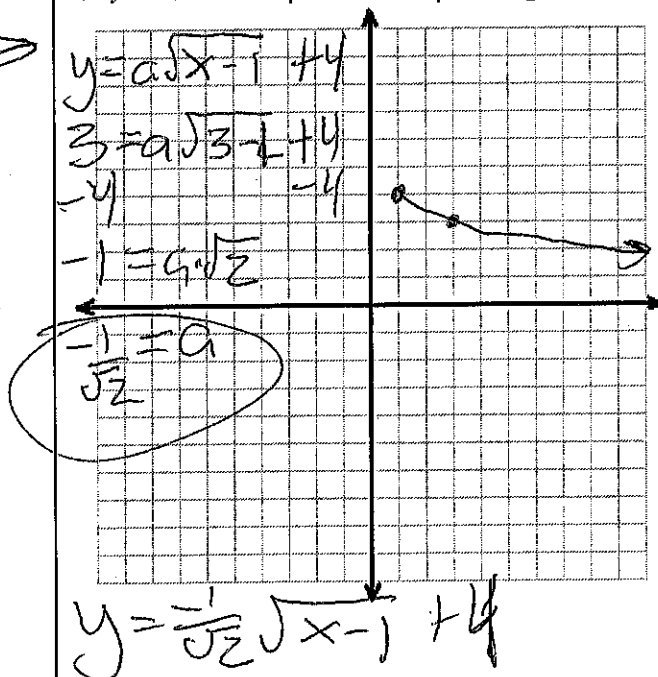 y=a√x-1 +4
3=a√3-1+4
-4 -4
-1=a·√2
-1/√2=a
y=-1/√2√x-1 +4